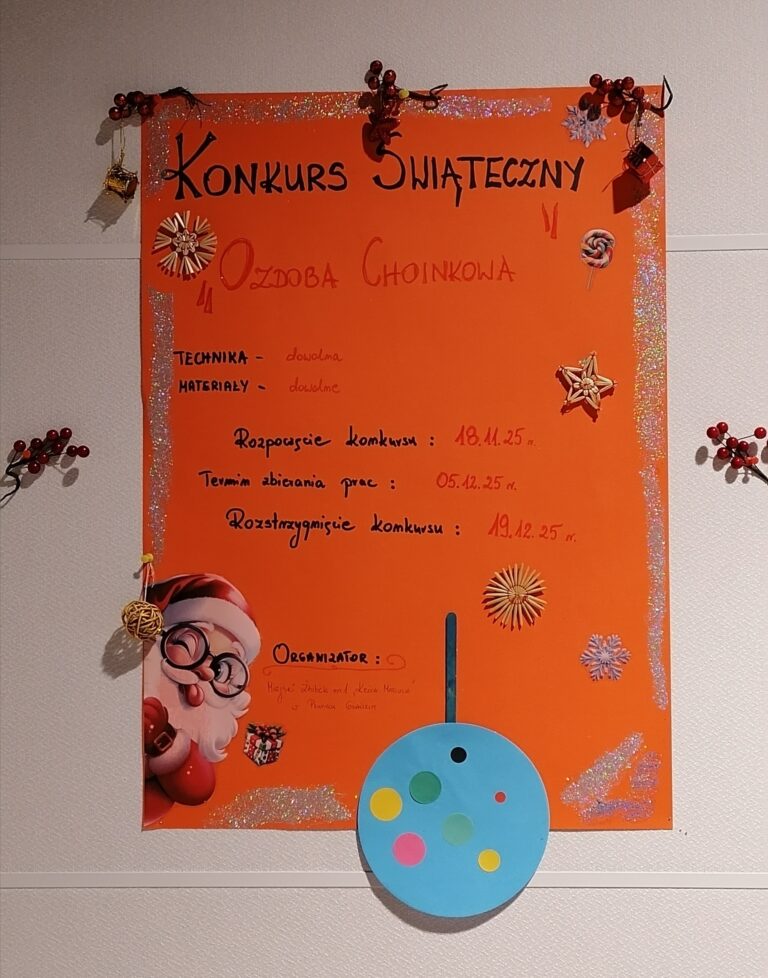 KONKURS ŚWIĄTECZNY
"OZDOBA CHOINKOWA"
TECHNIKA - dowolna
MATERIAŁY - dowolne
Rozpoczęcie konkursu : 18.11.25 r.
Termin zbierania prac : 05.12.25 r.
Rozstrzygnięcie konkursu : 19.12.25 r.
ORGANIZATOR :
Miejski Żłobek
w